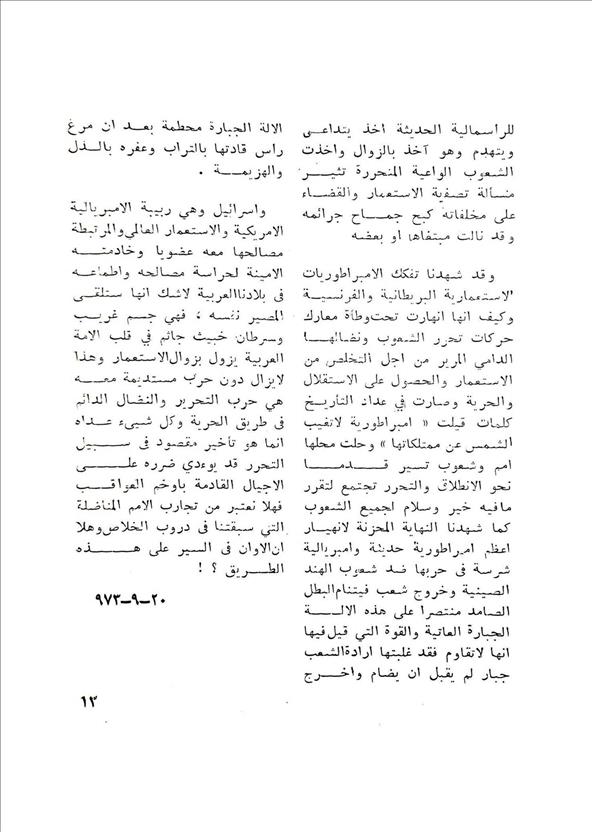 للرأسمالية الحديثة اخذ يتداعـى
ويتهدم وهو آخذ بالزوال واخذت
الشعوب الواعية المتحررة تثيــر
مسألة تصفية الاستعمار والقضاء
على مخلفاته كبح جمـاح جرائمه
وقد نالت مبتغاها او بعضه
وقد شهدنا تفكك الامبراطوريات
الاستعمارية البريطانية والفرنسيـة
وكيف انها انهارت تحت وطأة معارك
حركات تحرر الشعوب ونضالهــا
الدامي المرير من اجل التخلص من
الاستعمار والحصول على الاستقلال
والحرية وصارت في عداد التاريـخ
كلمات قيلت « امبراطورية لاتغيب
الشمس عن ممتلكاتها » وحلت محلها
امم وشعوب تسير قـدمــا
نحو الانطلاق والتحرر تجتمع لتقرر
مافيه خير وسلام لجميع الشعوب
كما شهدنا النهاية المحزنة لانهيار
اعظم امبراطورية حديثة وامبريالية
شرسة في حربها ضد شعوب الهند
الصينية وخروج شعب فيتنام البطل
الصامد منتصرا على هذه الالــة
الجبارة العاتية والقوة التي قيل فيها
انها لاتقاوم فقد غلبتها ارادة الشعب
جبار لم يقبل ان يضام واخــرج
الالة الجبارة محطمة بعـد ان مرغ
راس قادتها بالتراب وعفره بالـذل
والهزيمــة .
واسرائيل وهي ربيبة الامبريالية
الامريكية والاستعمار العالمي والمرتبطة
مصالحها معه عضويا وخادمتــه
الامينة لحراسة مصالحه واطماعـه
في بلادنا العربية لاشك انها ستلقـى
المصير نفسـه ، فهي جسم غريـب
وسرطان خبيث جاثم في قلب الامة
العربية يزول بزوال الاستعمار وهذا
لايزال دون حرب مستديمة معــه
هي حرب التحرير والنضال الدائم
في طريق الحرية وكل شيىء عـداه
انما هو تأخير مقصود في سـبيل
التحرر قد يوءدي ضرره علــى
الاجيال القادمة بأوخم العواقـب
فهلا نعتبر من تجارب الامم المناضلة
التي سبقتنا في دروب الخلاص وهلا
ان الاوان في السير على هــذه
الطـريق ؟ !
٢٠-٩-٩٧٣
١٣